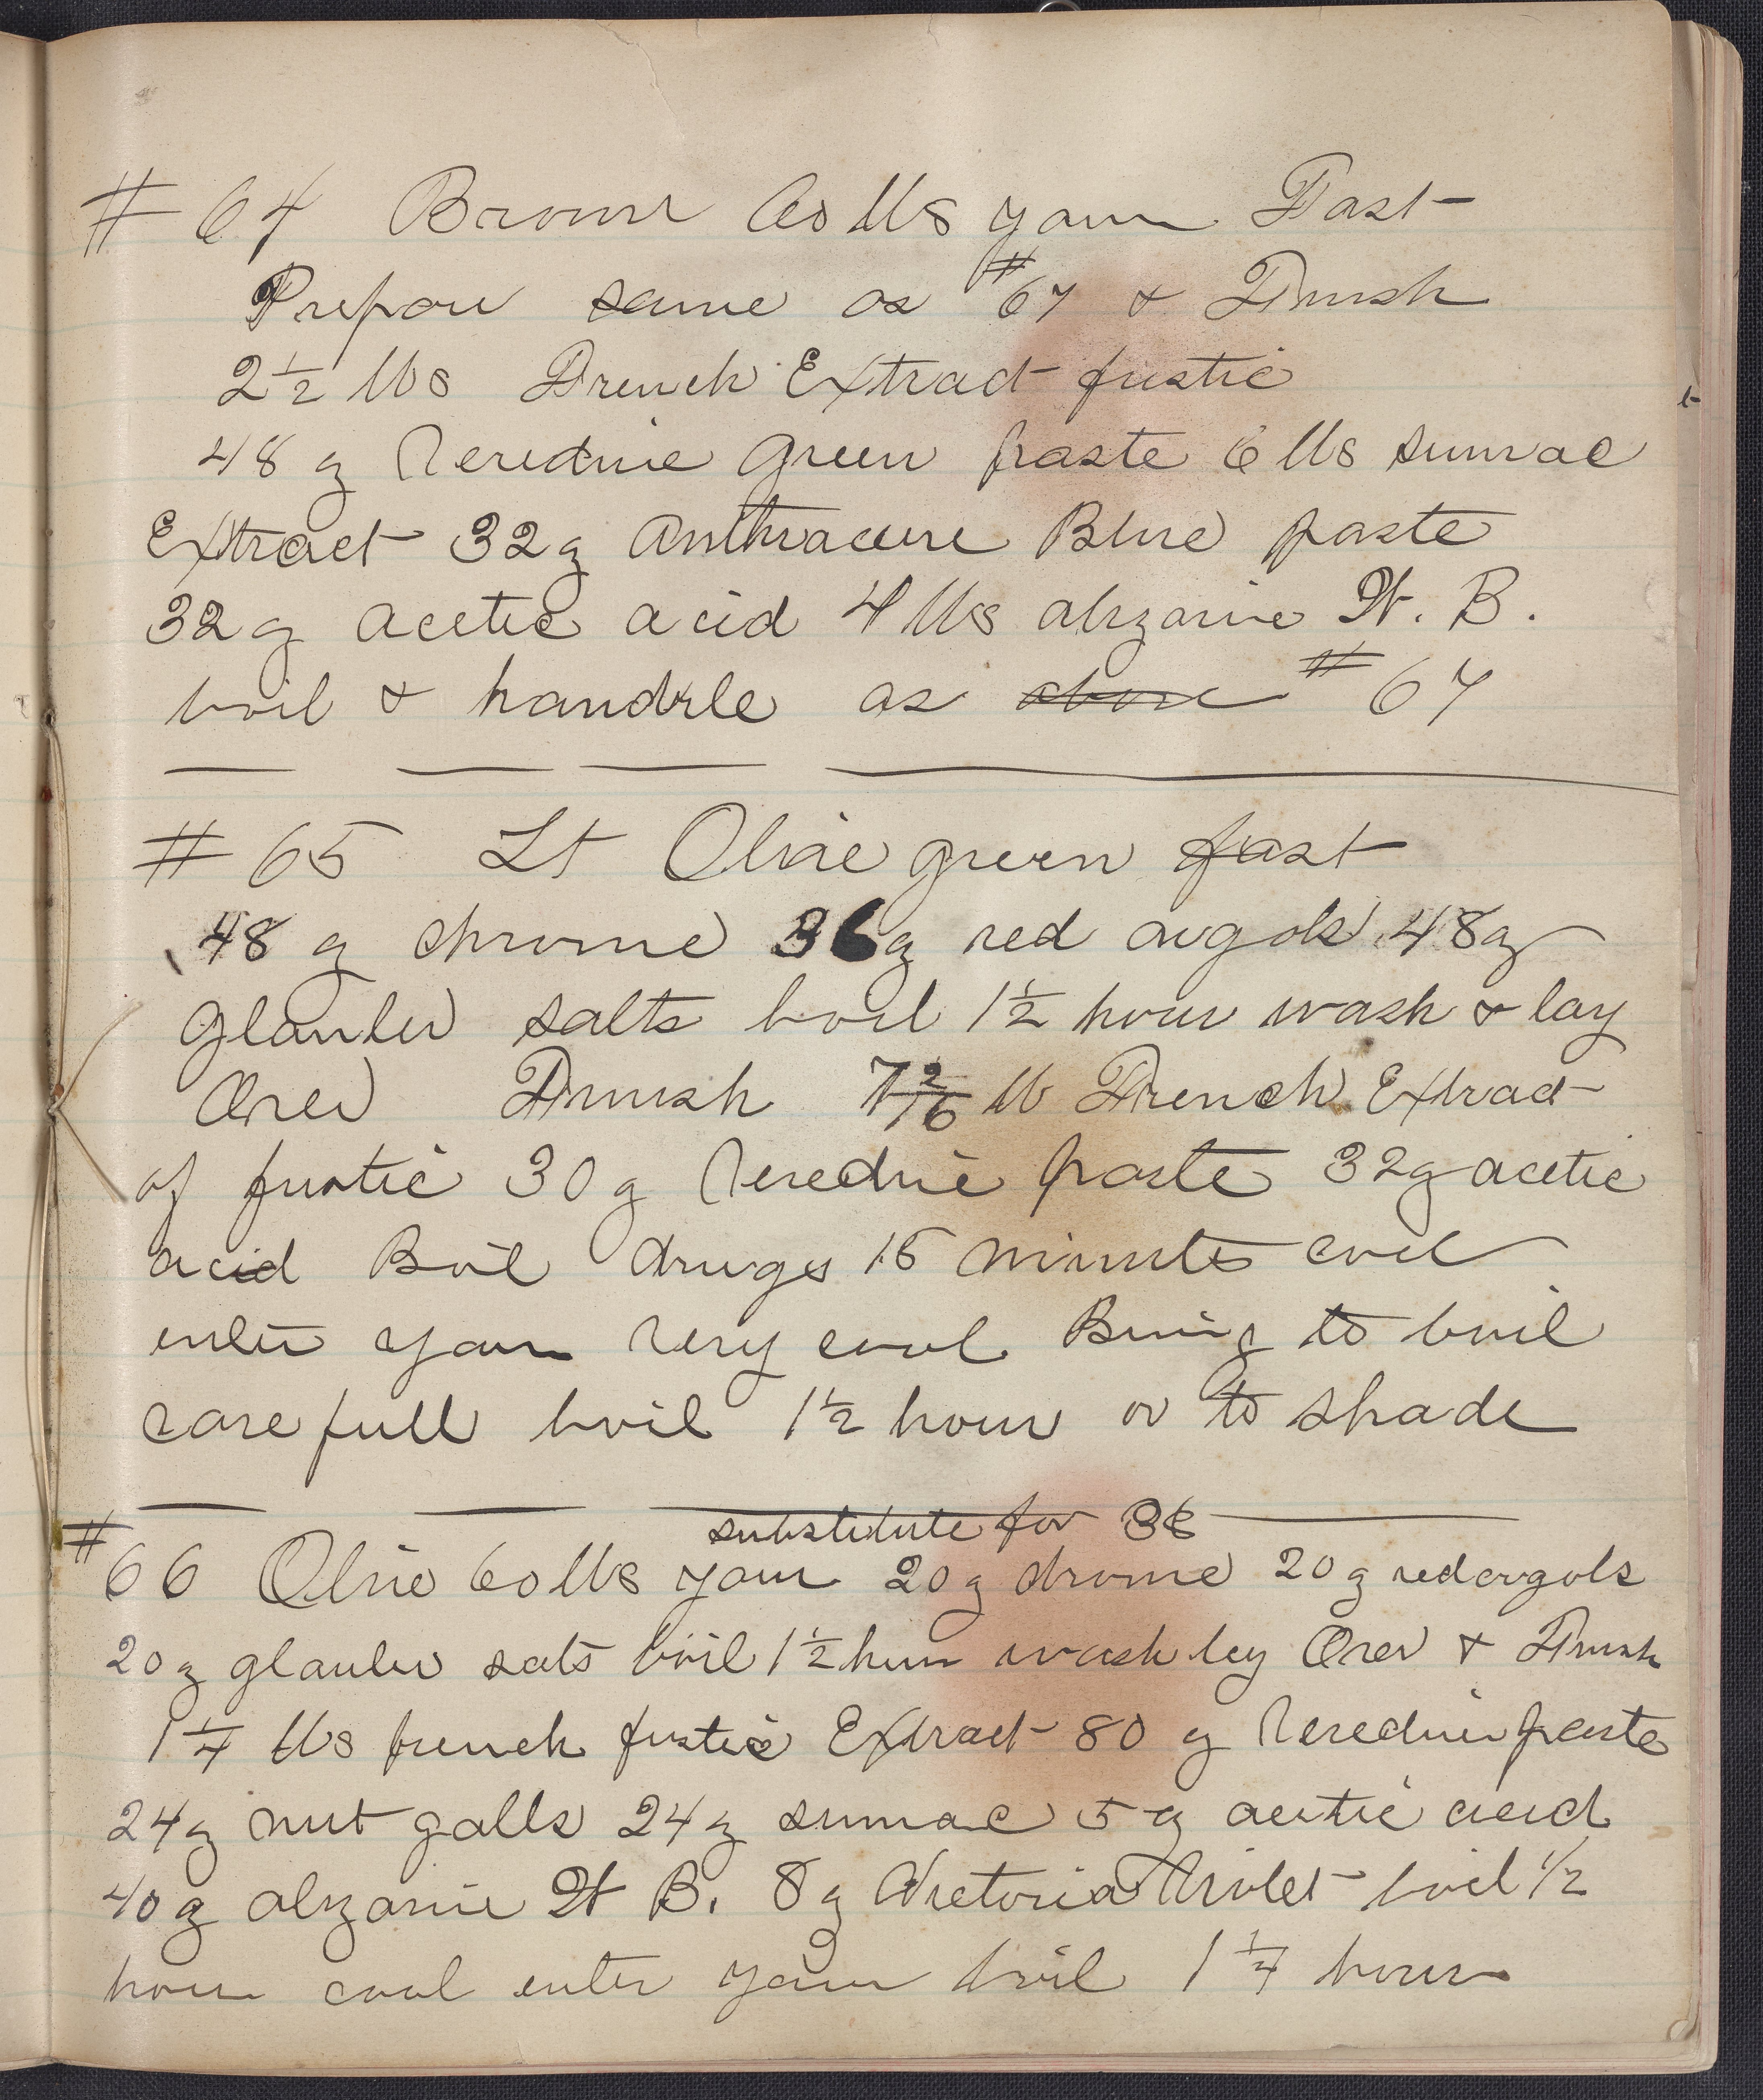 # 64 Brown 60 lbs yarn Fast
Prepare same as #67 & Finish
2 1/2 lbs French Extract fustic
48 g Ceredine green paste 6 lbs sumac
Extract 32 g Anthracene Blue paste
32 g acetic acid 4 lbs alizarine W. B.
boil & handle as above #67
# 65 Lt Olive green fast
48 g chrome 36 g red argols 48 g
glauber salts boil 1 1/2 hour wash & lay
Over Finish 7 2/16 lb French Extract
of fustic 30 g Ceredine paste 32 g acetic
acid Boil druges 15 minuts cool
enter yarn very cool Bring to boil
care full boil 1 1/2 hour or to shade
substitute for 36
#66 Olive 60 lbs yarn 20 g chrome 20 g red argols
20 g glauber salts boil 1 1/2 hour wash lay Over & Finish
1 1/4 lbs french fustic Extract 80 g Ceredine paste
24 g nut galls 24 g sumac 5 g acetic acid
40 g alizarine W B. 8 g Victoria Violet boil 1/2
hour cool enter yarn boil 1 1/4 hour